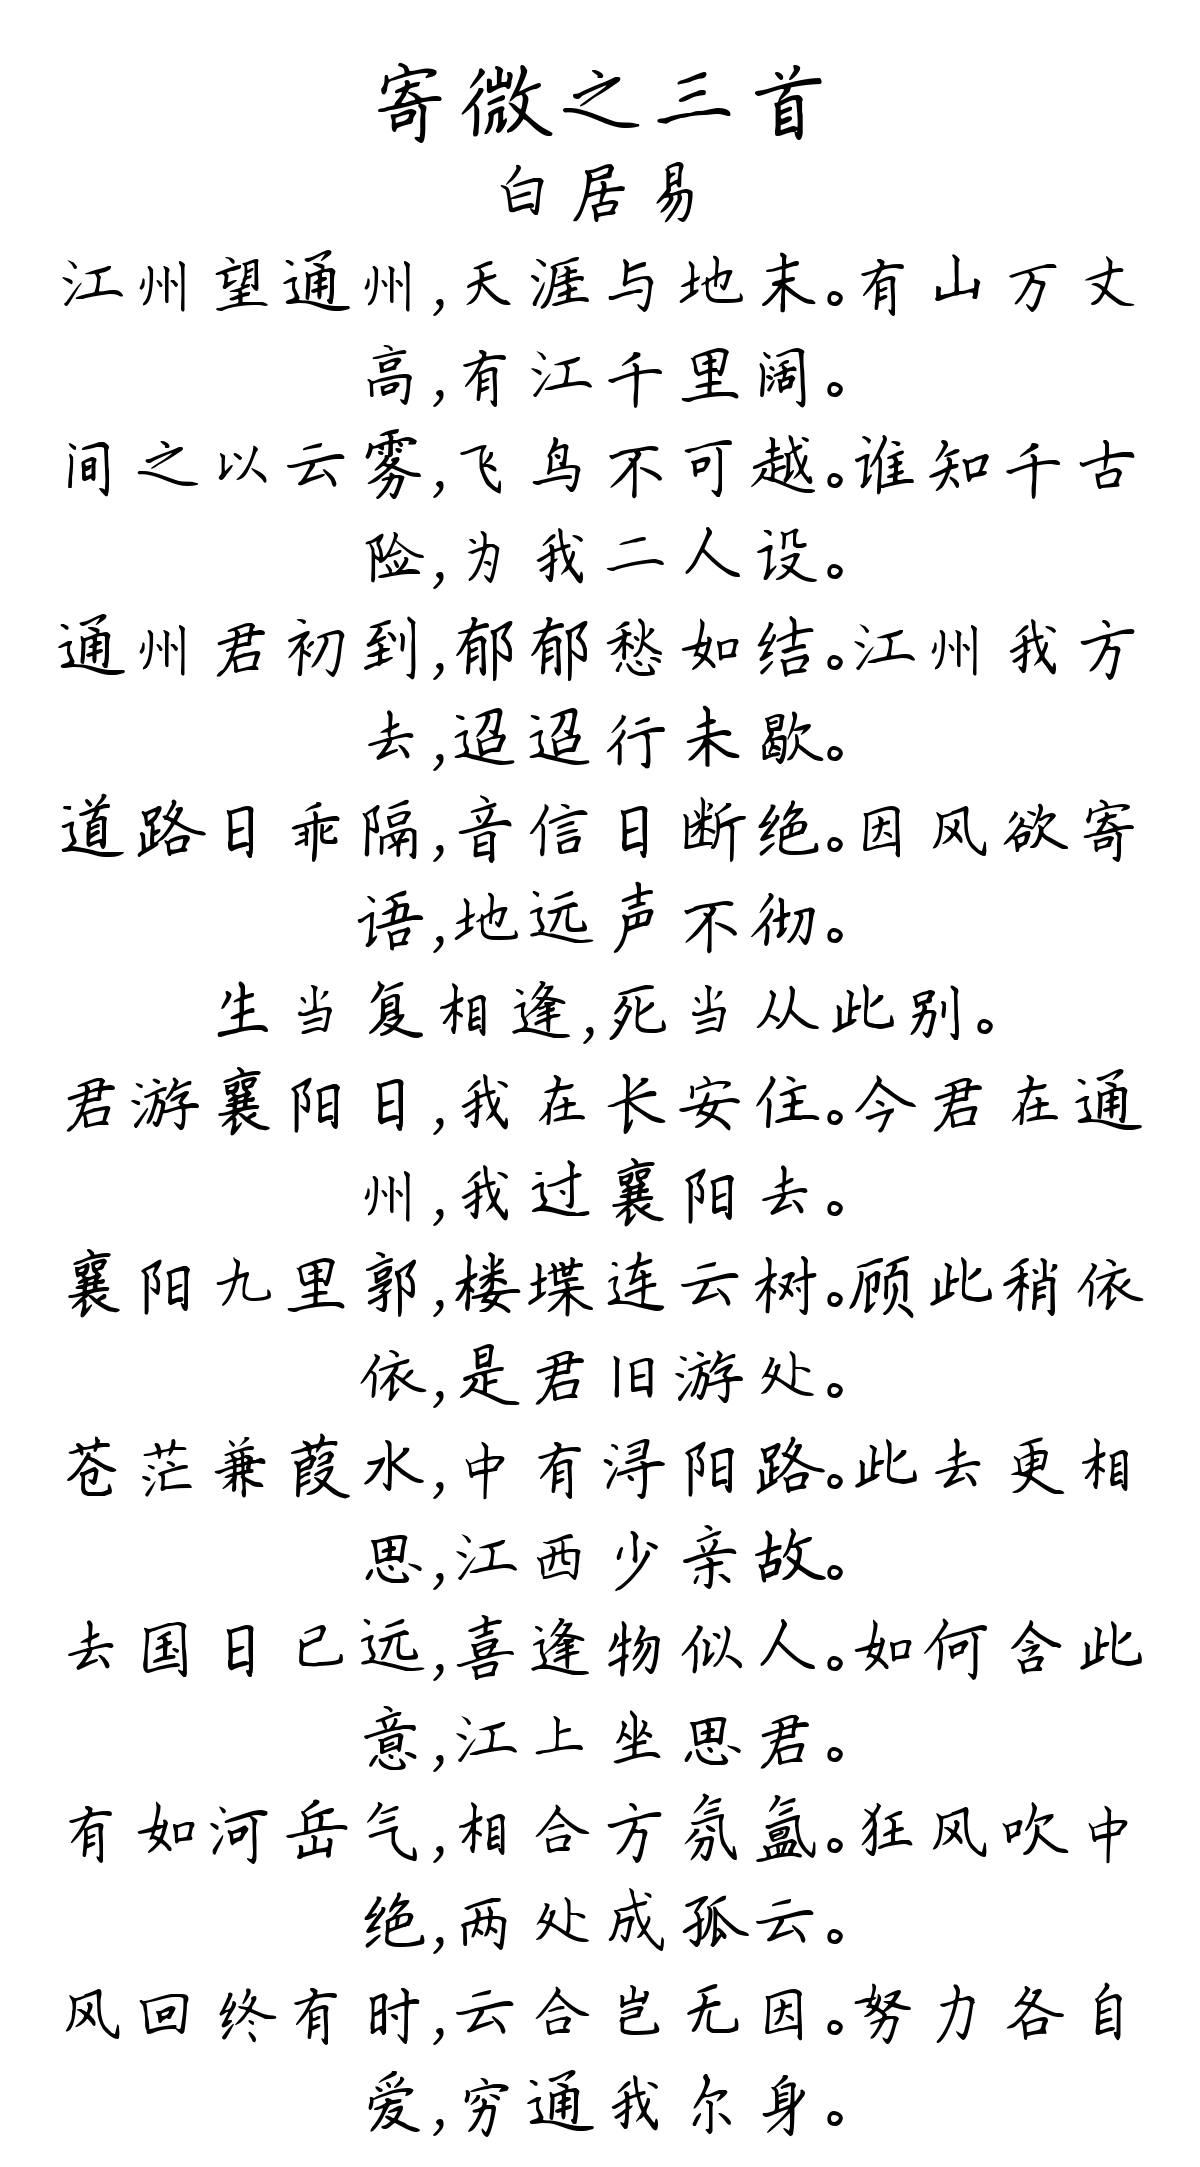 寄微之三首
白居易
江州望通州,天涯与地末。有山万丈
高,有江千里阔。
间之以云雾,飞鸟不可越。谁知千古
险,为我二人设。
通州君初到,郁郁愁如结。江州我方
去,迢迢行未歇。
道路日乖隔,音信日断绝。因风欲寄
语,地远声不彻。
生当复相逢,死当从此别。
君游襄阳日,我在长安住。今君在通
州,我过襄阳去。
襄阳九里郭,楼堞连云树。顾此稍依
依,是君旧游处。
苍茫兼葭水,中有浔阳路。此去更相
思,江西少亲故。
去国日已远,喜逢物似人。如何含此
意,江上坐思君。
有如河岳气,相合方氛氲。狂风吹中
绝,两处成孤云。
风回终有时,云合岂无因。努力各自
爱,穷通我尔身。